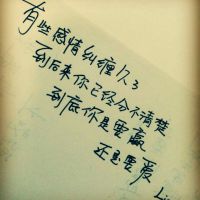 有些感情纠缠久了
到后来你已经分不清楚
到底你是要赢
还是要爱